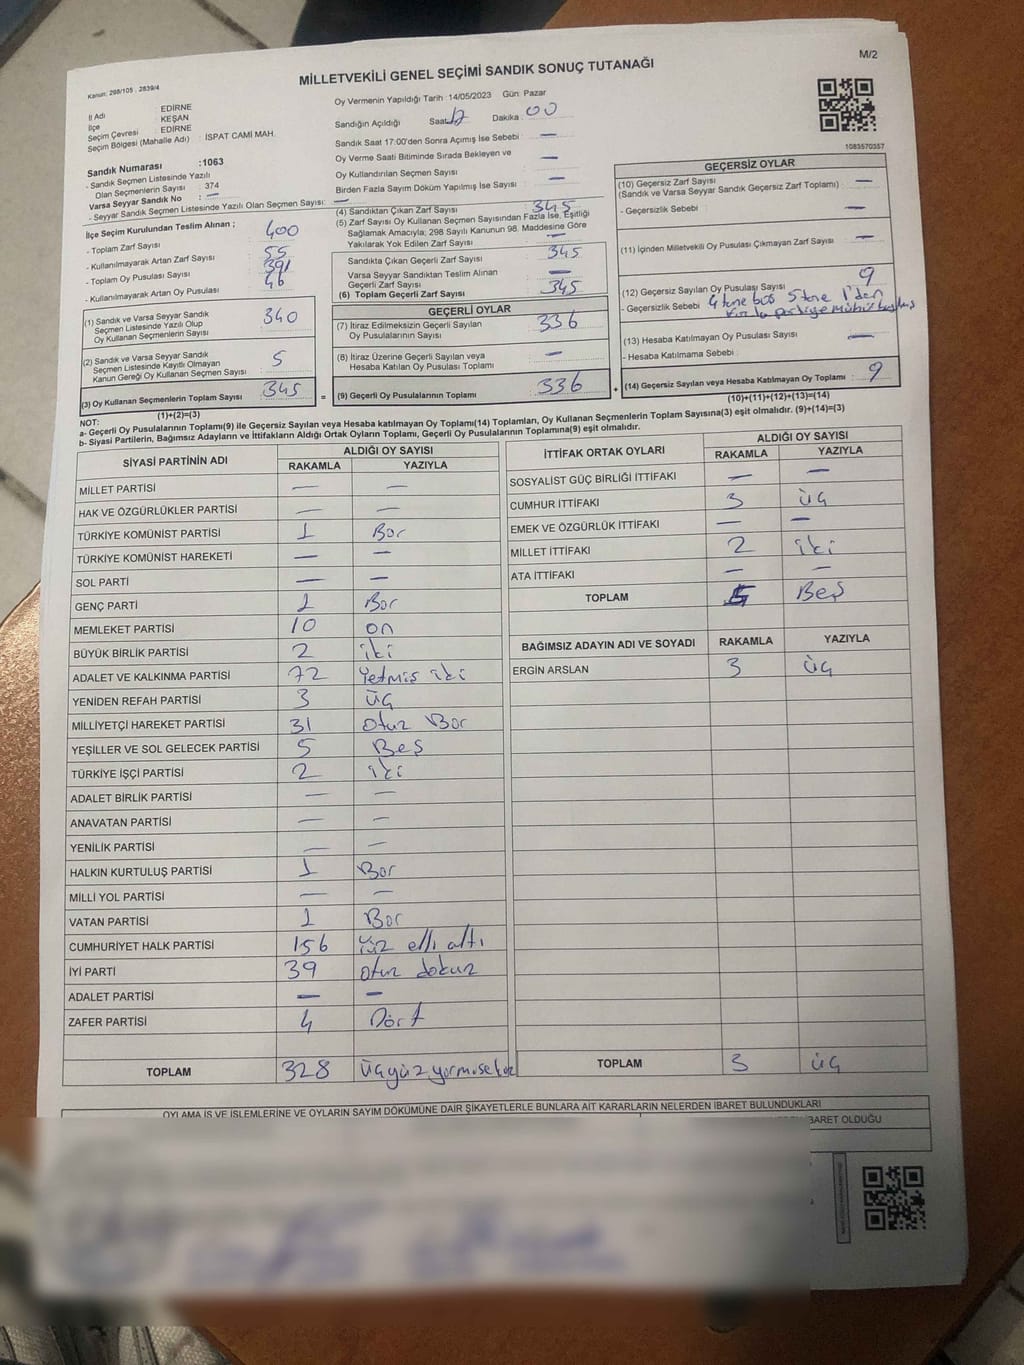 M/2
MİLLETVEKİLİ GENEL SEÇİMİ SANDIK SONUÇ TUTANAĞI
Kanun: 298/105 , 2839/4
İl Adı : EDİRNE
İlçe : KEŞAN
Seçim Çevresi : EDİRNE
Seçim Bölgesi (Mahalle Adı) : İSPAT CAMİ MAH.
Sandık Numarası :1063
- Sandık Seçmen Listesinde Yazılı
Olan Seçmenlerin Sayısı : 374
Varsa Seyyar Sandık No : —
- Seyyar Sandık Seçmen Listesinde Yazılı Olan Seçmen Sayısı: —
Oy Vermenin Yapıldığı Tarih :14/05/2023 Gün: Pazar
Sandığın Açıldığı Saat Dakika 00
Sandık Saat 17:00'den Sonra Açımış İse Sebebi : —
Oy Verme Saati Bitiminde Sırada Bekleyen ve
Oy Kullandırılan Seçmen Sayısı : —
Birden Fazla Sayım Döküm Yapılmış İse Sayısı : —
1083570357
İlçe Seçim Kurulundan Teslim Alınan ;
- Toplam Zarf Sayısı : 400
- Kullanılmayarak Artan Zarf Sayısı : 55
- Toplam Oy Pusulası Sayısı : 391
- Kullanılmayarak Artan Oy Pusulası : 46
(1) Sandık ve Varsa Seyyar Sandık
Seçmen Listesinde Yazılı Olup
Oy Kullanan Seçmenlerin Sayısı : 340
(2) Sandık ve Varsa Seyyar Sandık
Seçmen Listesinde Kayıtlı Olmayan
Kanun Gereği Oy Kullanan Seçmen Sayısı : 5
(3) Oy Kullanan Seçmenlerin Toplam Sayısı : 345
(1)+(2)=(3)
(4) Sandıktan Çıkan Zarf Sayısı : 345
(5) Zarf Sayısı Oy Kullanan Seçmen Sayısından Fazla İse, Eşitliği
Sağlamak Amacıyla; 298 Sayılı Kanunun 98. Maddesine Göre
Yakılarak Yok Edilen Zarf Sayısı : —
Sandıkta Çıkan Geçerli Zarf Sayısı : 345
Varsa Seyyar Sandıktan Teslim Alınan
Geçerli Zarf Sayısı : —
(6) Toplam Geçerli Zarf Sayısı : 345
GEÇERLİ OYLAR
(7) İtiraz Edilmeksizin Geçerli Sayılan
Oy Pusulalarının Sayısı : 336
(8) İtiraz Üzerine Geçerli Sayılan veya
Hesaba Katılan Oy Pusulası Toplamı : —
= (9) Geçerli Oy Pusulalarının Toplamı : 336 +
GEÇERSİZ OYLAR
(10) Geçersiz Zarf Sayısı : —
(Sandık ve Varsa Seyyar Sandık Geçersiz Zarf Toplamı)
- Geçersizlik Sebebi : —
(11) İçinden Milletvekili Oy Pusulası Çıkmayan Zarf Sayısı : —
(12) Geçersiz Sayılan Oy Pusulası Sayısı : 9
- Geçersizlik Sebebi : 4 tane boş 5 tane 1'den
fazla partiye mühür basılmış
(13) Hesaba Katılmayan Oy Pusulası Sayısı : —
- Hesaba Katılmama Sebebi :
(14) Geçersiz Sayılan veya Hesaba Katılmayan Oy Toplamı : 9
(10)+(11)+(12)+(13)=(14)
NOT:
a- Geçerli Oy Pusulalarının Toplamı(9) ile Geçersiz Sayılan veya Hesaba katılmayan Oy Toplamı(14) Toplamları, Oy Kullanan Seçmenlerin Toplam Sayısına(3) eşit olmalıdır. (9)+(14)=(3)
b- Siyasi Partilerin, Bağımsız Adayların ve İttifakların Aldığı Ortak Oyların Toplamı, Geçerli Oy Pusulalarının Toplamına(9) eşit olmalıdır.
SİYASİ PARTİNİN ADI ALDIĞI OY SAYISI
RAKAMLA YAZIYLA
MİLLET PARTİSİ — —
HAK VE ÖZGÜRLÜKLER PARTİSİ — —
TÜRKİYE KOMÜNİST PARTİSİ 1 Bir
TÜRKİYE KOMÜNİST HAREKETİ — —
SOL PARTİ — —
GENÇ PARTİ 1 Bir
MEMLEKET PARTİSİ 10 on
BÜYÜK BİRLİK PARTİSİ 2 iki
ADALET VE KALKINMA PARTİSİ 72 Yetmiş iki
YENİDEN REFAH PARTİSİ 3 üç
MİLLİYETÇİ HAREKET PARTİSİ 31 otuz Bir
YEŞİLLER VE SOL GELECEK PARTİSİ 5 Beş
TÜRKİYE İŞÇİ PARTİSİ 2 iki
ADALET BİRLİK PARTİSİ — —
ANAVATAN PARTİSİ — —
YENİLİK PARTİSİ — —
HALKIN KURTULUŞ PARTİSİ 1 Bir
MİLLİ YOL PARTİSİ — —
VATAN PARTİSİ 1 Bir
CUMHURİYET HALK PARTİSİ 156 Yüz elli altı
İYİ PARTİ 39 otuz dokuz
ADALET PARTİSİ — —
ZAFER PARTİSİ 4 Dört
TOPLAM 328 üçyüz yirmisekiz
İTTİFAK ORTAK OYLARI ALDIĞI OY SAYISI
RAKAMLA YAZIYLA
SOSYALİST GÜÇ BİRLİĞİ İTTİFAKI — —
CUMHUR İTTİFAKI 3 üç
EMEK VE ÖZGÜRLÜK İTTİFAKI — —
MİLLET İTTİFAKI 2 iki
ATA İTTİFAKI — —
TOPLAM 5 Beş
BAĞIMSIZ ADAYIN ADI VE SOYADI RAKAMLA YAZIYLA
ERGİN ARSLAN 3 üç
TOPLAM 3 üç
OYLAMA İŞ VE İŞLEMLERİNE VE OYLARIN SAYIM DÖKÜMÜNE DAİR ŞİKAYETLERLE BUNLARA AİT KARARLARIN NELERDEN İBARET BULUNDUKLARI
BARET OLDUĞU